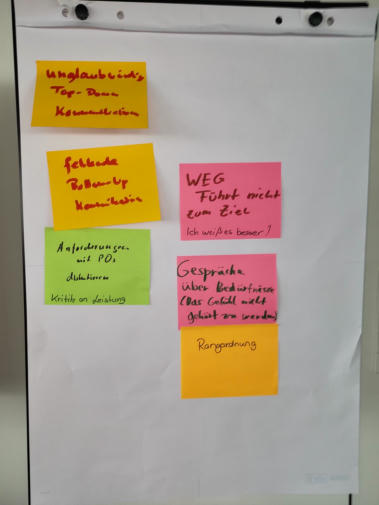 Unglaubwürdig
Top-Down
Kommunikation
fehlende
Bottom-Up
Kommunikation
Anforderungen
mit POs
diskutieren
Kritik an Leistung
WEG
Führt nicht
zum Ziel
Ich weiß es besser!
Gespräche
über Bedürfnisse
(Das Gefühl nicht
gehört zu werden)
Rangordnung